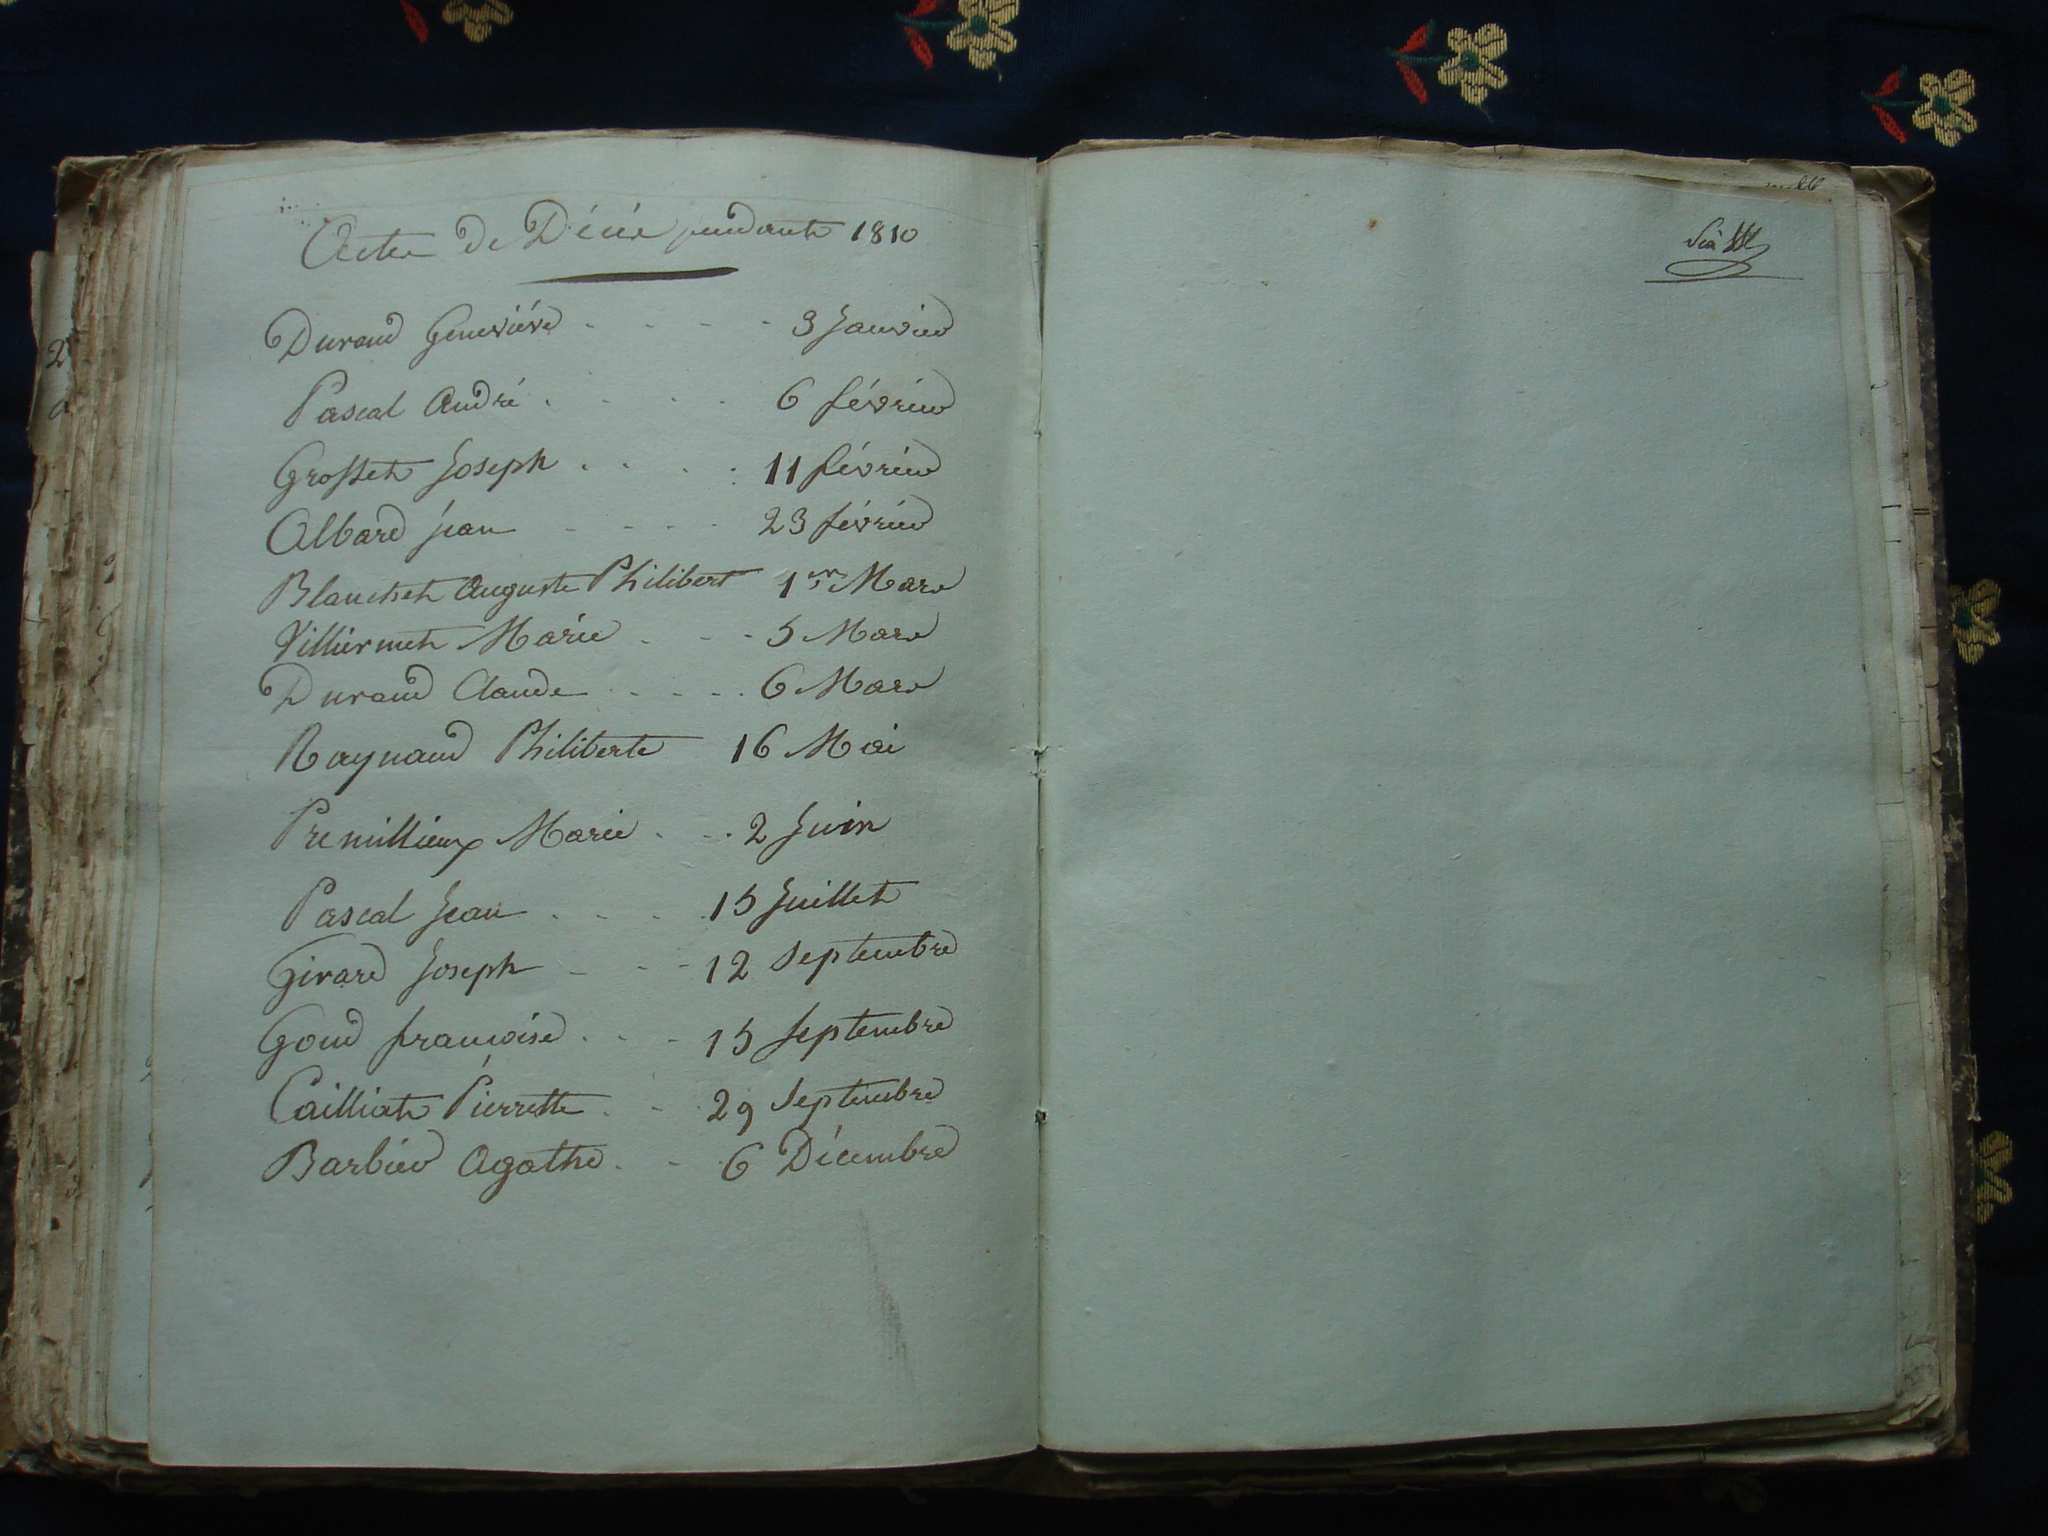 Actes de Décès pendant 1810
Durand Geneviéve - - - - - 3 Janvier
Pascal André . . . . . 6 février
Grosset Joseph . . . . . 11 février
Albard jean - - - - - 23 février
Blanchet Auguste Philibert 1er Mars
Villiermet Marie - - - 5 Mars
Durand Claude . . . . . 6 Mars
Raynaud Philiberte 16 Mai
Premillieux Marie . . . 2 Juin
Pascal Jean . . . . 15 Juillet
Girard Joseph - - - 12 Septembre
Goud françoise . . . 15 Septembre
Cailliat Pierrette . . 29 Septembre
Barbier Agathe . . 6 Décembre